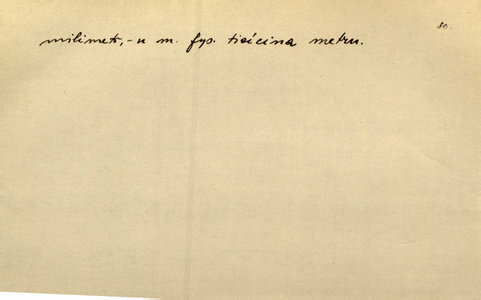 80.
milimetr,-u m. fys. tisícina metru.